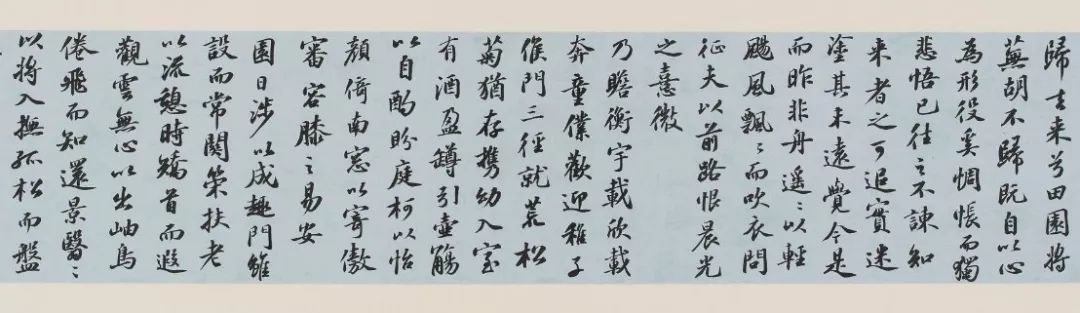 歸去来兮田園将
蕪胡不歸既自以心
為形役奚惆悵而獨
悲悟已往之不諫知
来者之可追實迷
塗其未遠覺今是
而昨非舟遥〻以輕
颺風飄〻而吹衣問
征夫以前路恨晨光
之憙微
乃瞻衡宇載欣載
奔童僕歡迎稚子
候門三徑就荒松
菊猶存携幼入室
有酒盈罇引壺觴
以自酌盼庭柯以怡
顔倚南窓以寄傲
審容膝之易安
園日涉以成趣門雖
設而常關策扶老
以流憩時矯首而遐
觀雲無心以出岫鳥
倦飛而知還景翳〻
以将入撫孤松而盤